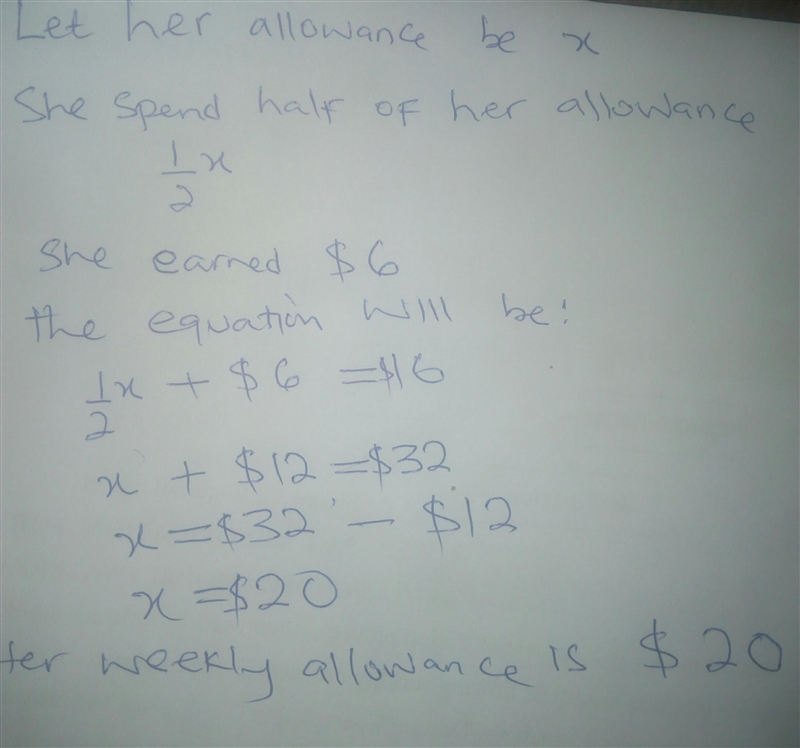 Let her allowance be x
She spend half of her allowance
1/2 x
She earned $6
the equation will be:
1/2 x + $6 = $16
x + $12 = $32
x = $32 - $12
x = $20
ter weekly allowance is $20